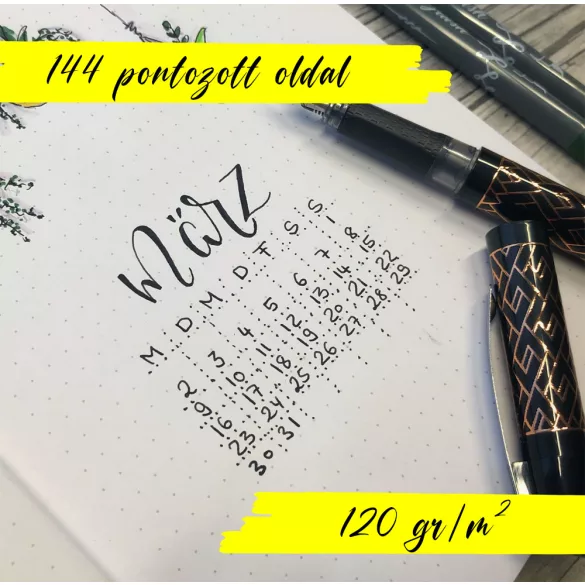 144 pontozott oldal
März
M D M D F S S
1
2 3 4 5 6 7 8
9 10 11 12 13 14 15
16 17 18 19 20 21 22
23 24 25 26 27 28 29
30 31
120 gr/m²